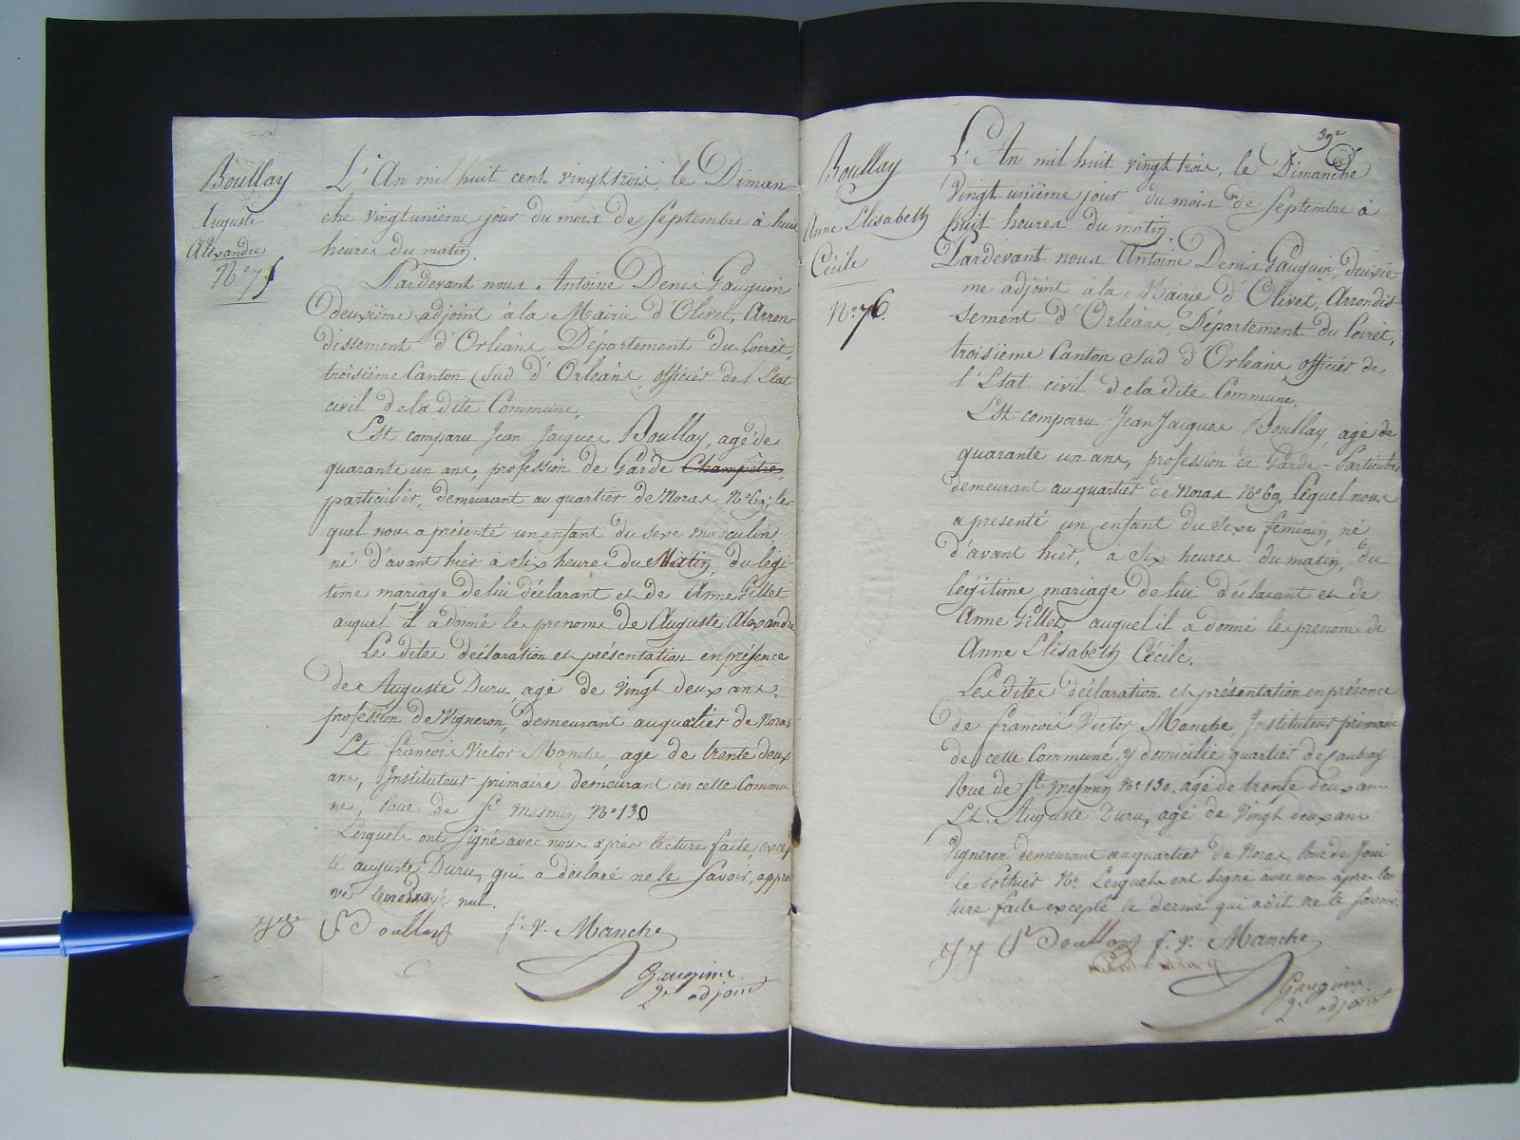 Boullay
Auguste
Alexandre
N° 75
L'An mil huit cent vingt trois, le Diman=
che vingt unième jour du mois de Septembre à huit
heures du matin.
Pardevant nous Antoine Denis Gauguin
deuxième adjoint à la Mairie d'Olivet, Arron-
dissement d'Orléans, Département du Loiret,
troisième Canton Sud d'Orléans, officier de l'Etat
civil de la dite Commune.
Est comparu Jean Jacques Boullay, agé de
quarante un ans, profession de Garde Champêtre
particulier, demeurant au quartier de Noras N° 69, le=
quel nous a présenté un enfant du sexe masculin
né d'avant hier à Six heures du Matin, du légi
time mariage de lui déclarant et de Anne Gillet
auquel il a donné les prenoms de Auguste Alexandre
Les dites déclaration et présentation en présence
de Auguste Duru, agé de vingt deux ans,
profession de Vigneron, demeurant au quartier de Noras
Et françois Victor Manche agé de trente deux
ans, Instituteur primaire demeurant en cette Commu
ne, Rue de St. Mesmin N° 130
Lesquels ont signé avec nous après lecture faite, excep
té auguste Duru, qui a déclaré ne le Savoir, appr
nul.
Boullay f. V. Manche
Gauguin
2e adjoint
39e
Boullay
Anne Elisabeth
Cécile
N° 76.
L'An mil huit vingt trois, le Dimanche
vingt unième jour du mois de Septembre à
huit heures du matin
Pardevant nous Antoine Denis Gauguin, deuxiè
me adjoint à la Mairie d'Olivet, Arrondis
sement d'Orléans, Département du Loiret,
troisième Canton Sud d'Orléans, officier de
l'Etat civil de la dite Commune.
Est comparu Jean Jacques Boullay, agé de
quarante un ans, profession de Garde-Particulier
demeurant au quartier de Noras N° 69, lequel nous
a presenté un enfant du Sexe feminin, né
d'avant hier, à Six heures du matin, du
legitime mariage de lui déclarant et de
Anne Gillet, auquel il a donné les prenoms de
Anne Elisabeth Cécile.
Les dites déclaration et présentation en présence
de francois Victor Manche Instituteur primaire
de cette Commune, y domicilié quartier de
Rue de St. Mesmin N° 130, agé de trente deux ans
Et Auguste Duru, agé de Vingt deux ans
Vigneron demeurant au quartier de Noras,
N° Lesquels ont signé avec nous après lec
ture faite excepté le dernier qui a dit ne le savoir.
Boullay f. V. Manche
Gauguin
2e adjoint